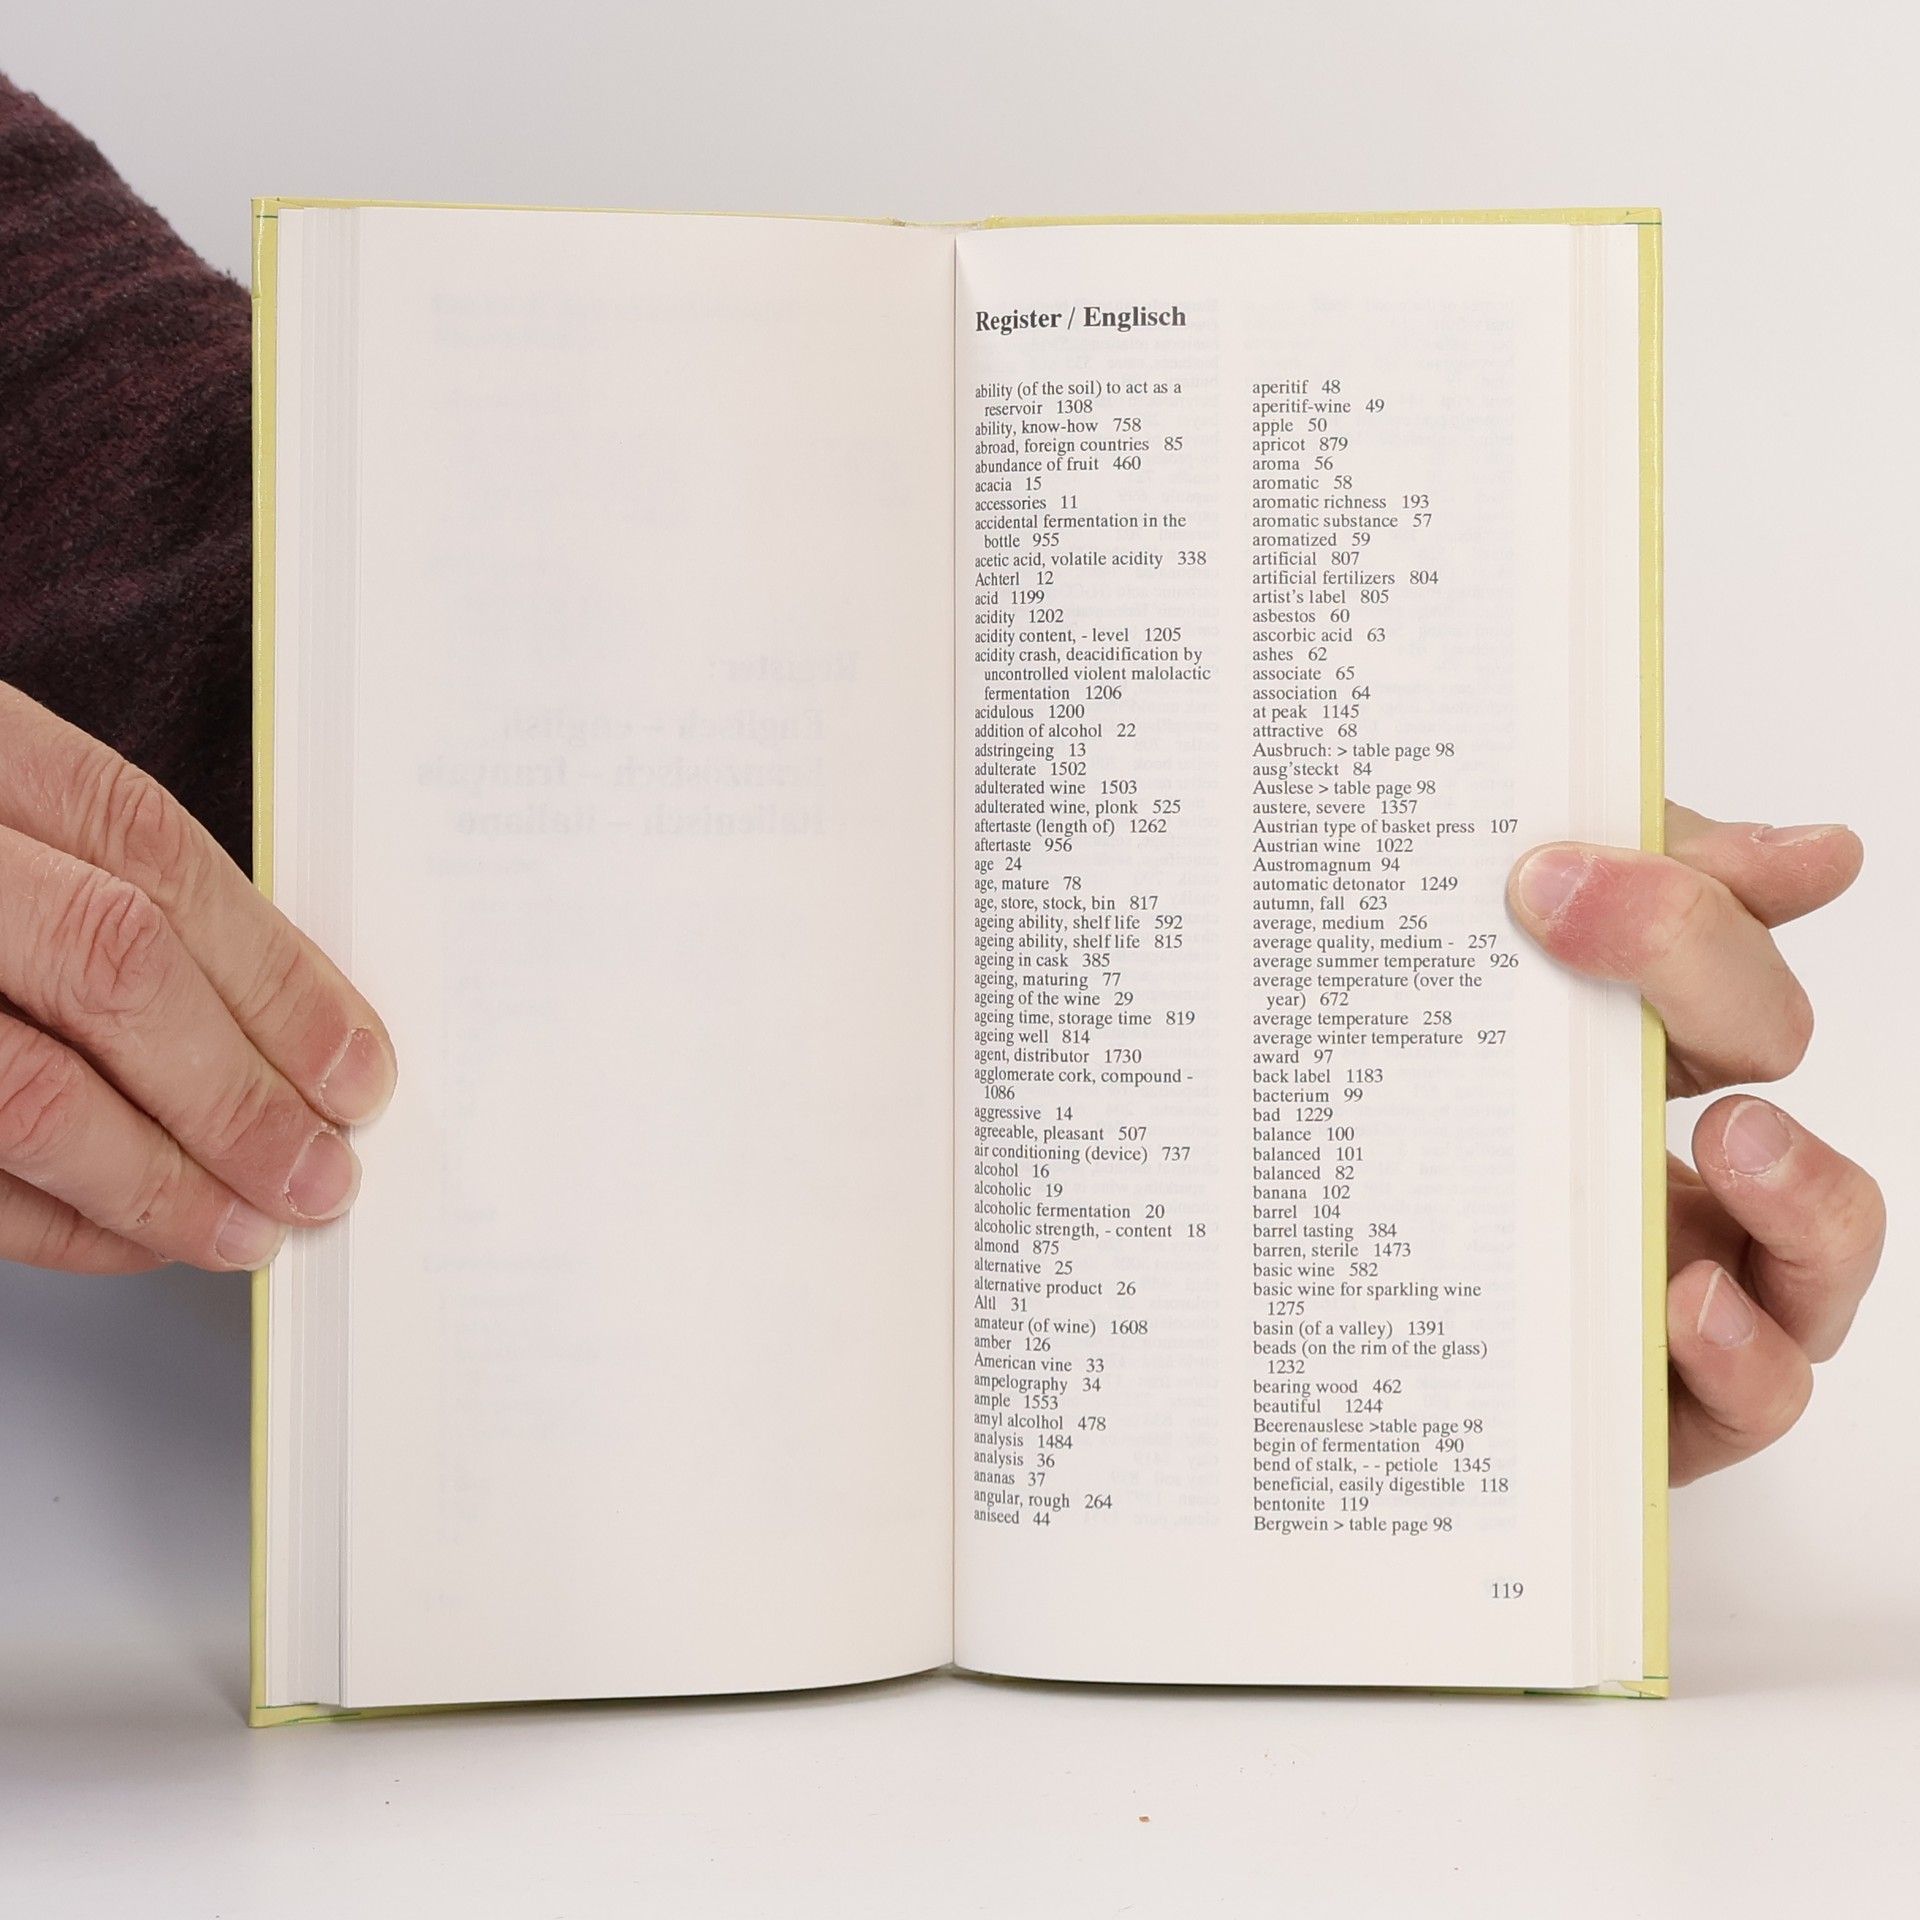 Register:
Englisch – english
Französisch – français
Italienisch – italiano
Register / Englisch
ability (of the soil) to act as a
reservoir 1308
ability, know-how 758
abroad, foreign countries 85
abundance of fruit 460
acacia 15
accessories 11
accidental fermentation in the
bottle 955
acetic acid, volatile acidity 338
Achterl 12
acid 1199
acidity 1202
acidity content, - level 1205
acidity crash, deacidification by
uncontrolled violent malolactic
fermentation 1206
acidulous 1200
addition of alcohol 22
adstringeing 13
adulterate 1502
adulterated wine 1503
adulterated wine, plonk 525
aftertaste (length of) 1262
aftertaste 956
age 24
age, mature 78
age, store, stock, bin 817
ageing ability, shelf life 592
ageing ability, shelf life 815
ageing in cask 385
ageing, maturing 77
ageing of the wine 29
ageing time, storage time 819
ageing well 814
agent, distributor 1730
agglomerate cork, compound -
1086
aggressive 14
agreeable, pleasant 507
air conditioning (device) 737
alcohol 16
alcoholic 19
alcoholic fermentation 20
alcoholic strength, - content 18
almond 875
alternative 25
alternative product 26
Altl 31
amateur (of wine) 1608
amber 126
American vine 33
ampelography 34
ample 1553
amyl alcolhol 478
analysis 1484
analysis 36
ananas 37
angular, rough 264
aniseed 44
aperitif 48
aperitif-wine 49
apple 50
apricot 879
aroma 56
aromatic 58
aromatic richness 193
aromatic substance 57
aromatized 59
artificial 807
artificial fertilizers 804
artist's label 805
asbestos 60
ascorbic acid 63
ashes 62
associate 65
association 64
at peak 1145
attractive 68
Ausbruch: > table page 98
ausg'steckt 84
Auslese > table page 98
austere, severe 1357
Austrian type of basket press 107
Austrian wine 1022
Austromagnum 94
automatic detonator 1249
autumn, fall 623
average, medium 256
average quality, medium - 257
average summer temperature 926
average temperature (over the
year) 672
average temperature 258
average winter temperature 927
award 97
back label 1183
bacterium 99
bad 1229
balance 100
balanced 101
balanced 82
banana 102
barrel 104
barrel tasting 384
barren, sterile 1473
basic wine 582
basic wine for sparkling wine
1275
basin (of a valley) 1391
beads (on the rim of the glass)
1232
bearing wood 462
beautiful 1244
Beerenauslese >table page 98
begin of fermentation 490
bend of stalk, - - petiole 1345
beneficial, easily digestible 118
bentonite 119
Bergwein > table page 98
119